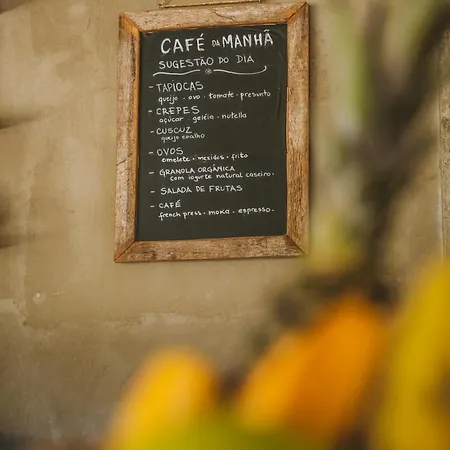 CAFÉ DA MANHÃ
SUGESTÃO DO DIA
- TAPIOCAS
queijo . ovo . tomate . presunto
- CREPES
açúcar . geléia . nutella
- CUSCUZ
queijo coalho
- OVOS
omelete . mexidos . frito
- GRANOLA ORGÂNICA
com iogurte natural caseiro.
- SALADA DE FRUTAS
- CAFÉ
french press . moka . espresso.